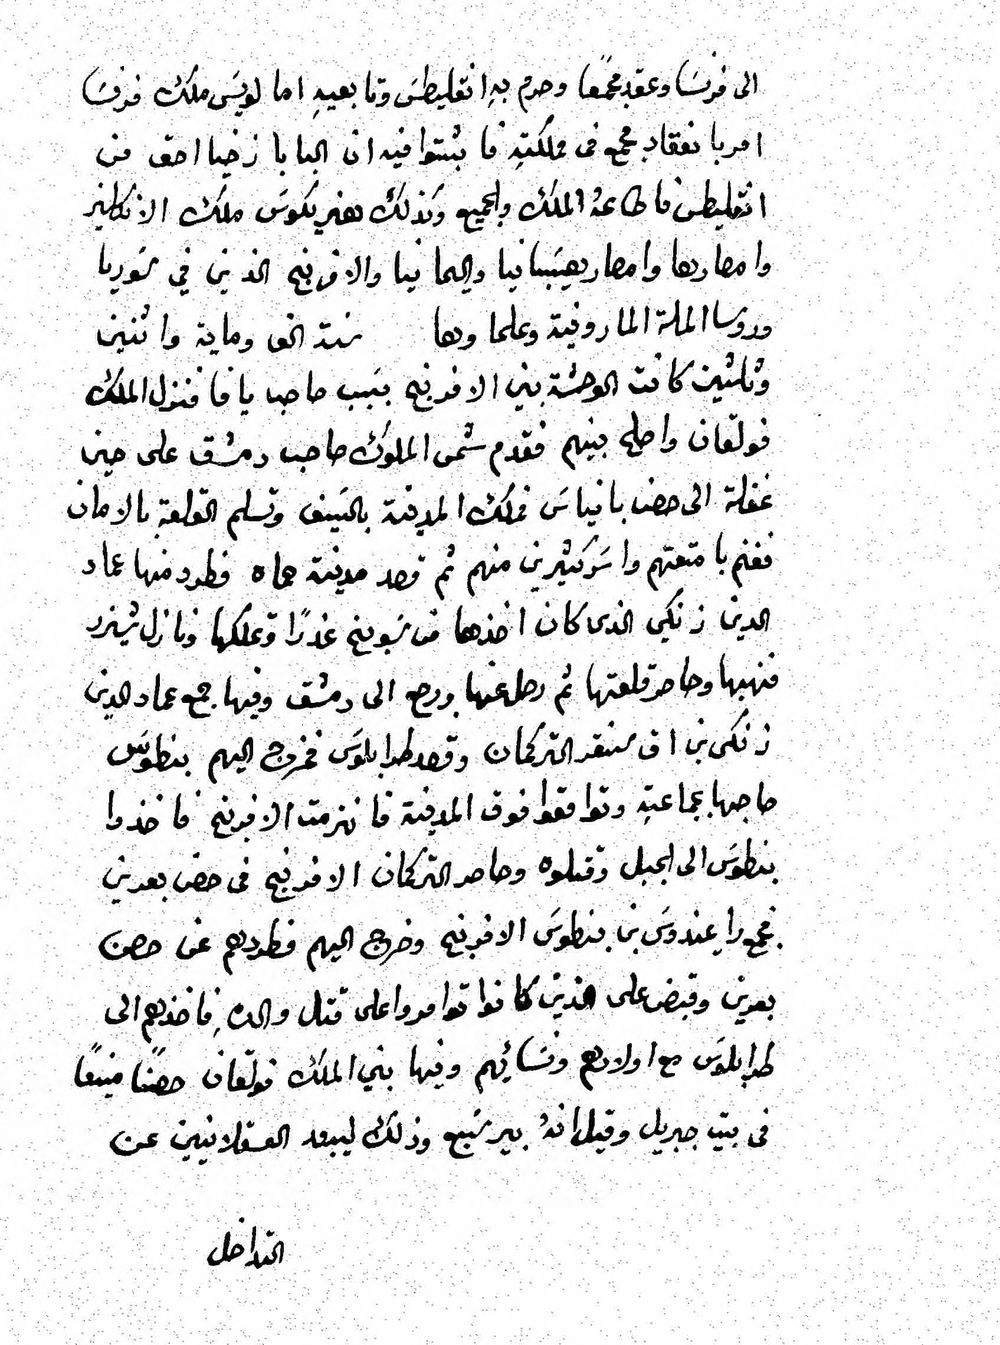 الى فرنسا وعقد مجمعًا وحرم بهِ انقليطس وتابعيهِ اما لويس ملك فرنسا
امر بانعقاد مجمع فى مملكتهِ فاثبتوا فيه ان البابا زخيا احق من
انقليطس فاطاعهُ الملك والجميع وكذلك هنريكوس ملك الانكليز
وامصارها وامصار هيسبانيا واليمانيا والافرنج الذين في سوريا
وروسا الملة المارونية وعلماوها سنة الف وماية واثنين
وثلثين كانت الوحشة بين الافرنج بسبب صاحب يافا فنزل الملك
فولقان واصلح بينهم فقدم شمس الملوك صاحب دمشق على حين
غفلة الى حصن بانياس فملك المدينة بالسيف وتسلم القلعة بالامان
فغنم بامتعتهم واسر كثيرين منهم ثم قصد مدينة حماه فطرد منها عماد
الدين زنكي الذى كان اخذها من سونج غدرًا وتملكها ونازل شيزر
فنهبها وحاصر قلعتها ثم رحل عنها ورجع الى دمشق وفيها جمع عماد الدين
زنكى بن اق سنقر التركمان وقصد طرابلوس فخرج اليهم بنطوس
صاحبها بجماعتهِ وتواقعوا فوق المدينة فانهزمت الافرنج فاخذوا
بنطوس الى الجبل وقتلوه وحاصر التركمان الافرنج فى حصن بعرين
فجمع رايمندوس بن بنطوس الافرنج وخرج اليهم فطردهم عن حصن
بعرين وقبض على الذين كانوا توامروا على قتل والده فاخذهم الى
طرابلوس مع اولادهم ونسائهم وفيها بني الملك فولقان حصنًا منيعًا
فى بيت جبريل وقيل انهُ بير سبع وذلك ليبعد العسقلانيين عن
التداخل